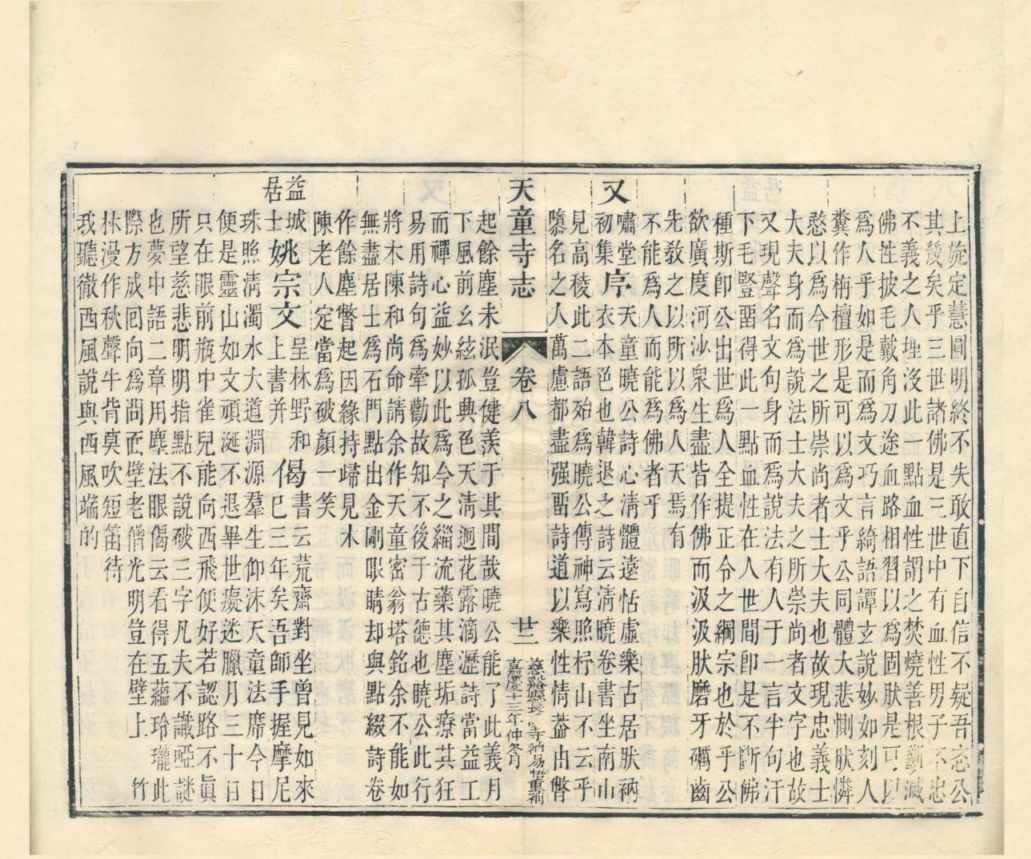 上旋定慧圓明終不失敢直下自信不疑吾忞公
其幾矣乎三世諸佛是三世中有血性男子不忠
不義之人埋沒此一點血性謂之焚燒善根斷滅
佛性披毛戴角刀途血路相習以爲固肰是可以
爲人乎如是而爲文巧言綺語譚玄說妙如刻人
糞作栴檀形是可以爲文乎公同體大悲惻肰憐
愍以爲今世之所崇尚者士大夫也故現忠義士
大夫身而爲說法士大夫之所崇尚者文字也故
又現聲名文句身而爲說法有人于一言半句汗
下毛豎畱得此一點血性在人世間卽是不斷佛
種斯卽公出世爲人全提正令之綱宗也於乎公
欲廣度河沙衆生盡皆作佛而汲汲肰磨牙礪齒
先敎之以所以爲人人天焉有
不能爲人而能爲佛者乎
又 嘯堂天童曉公詩心淸體遠恬虛樂古居肰衲
初集序 衣本色也韓退之詩云淸曉卷書坐南山
見高稜此二語殆爲曉公傳神寫照杼山不云乎
隳名之人萬慮都盡强畱詩道以樂性情葢出瞥
天童寺志 卷八 廿二
慈谿縣長 寺衲易晢重補
嘉慶十三年仲冬月
起餘塵未泯豈健羨于其間哉曉公能了此義月
下風前幺絃孤典色天淸迥花露滴瀝詩當益工
而禪心益妙以此爲今之緇流藥其塵垢療其狂
易用詩句爲牽勸故知不後于古德也曉公此行
將木陳和尚命請余作天童密翁塔銘余不能如
無盡居士爲石門點出金剛眼睛却與點綴詩卷
作餘塵瞥起因緣持歸見木
陳老人定當爲破顏一笑
益城 姚宗文呈林野和 偈書云荒齋對坐曾見如來
居士 上書并 巳三年矣吾師手握摩尼
珠照淸濁水大道淵源羣生仰沬天童法席今日
便是靈山如文頑涎不退畢世癡迷臘月三十日
只在眼前瓶中雀兒能向西飛便好若認路不眞
所望慈悲明明指點不說破三字凡夫不識啞謎
也夢中語二章用塵法眼偈云看得五蘊玲瓏此
際方成回向面壁老僧光明豈在壁上 竹
林漫作秋聲牛背莫吹短笛待
我聽徹西風說與西風端的